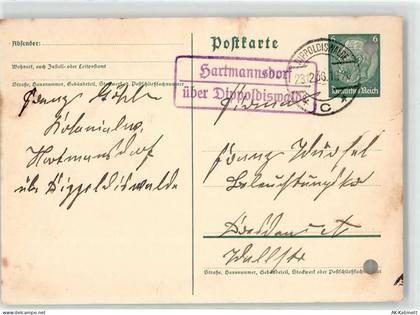 Absender:
Wohnort, auch Zustell- oder Leitpostamt
Straße, Hausnummer, Gebäudeteil, Stockwerk oder Postschließfachnummer
Postkarte
Hartmannsdorf
über Dippoldiswalde
DIPPOLDISWALDE
23.12.36
C
6 6
Deutsches Reich
Franz
Kolonialw.
Hartmannsdorf
über Dippoldiswalde
Franz
Dresden
Wallstr
Straße, Hausnummer, Gebäudeteil, Stockwerk oder Postschließfachnummer
AK-Kabinett